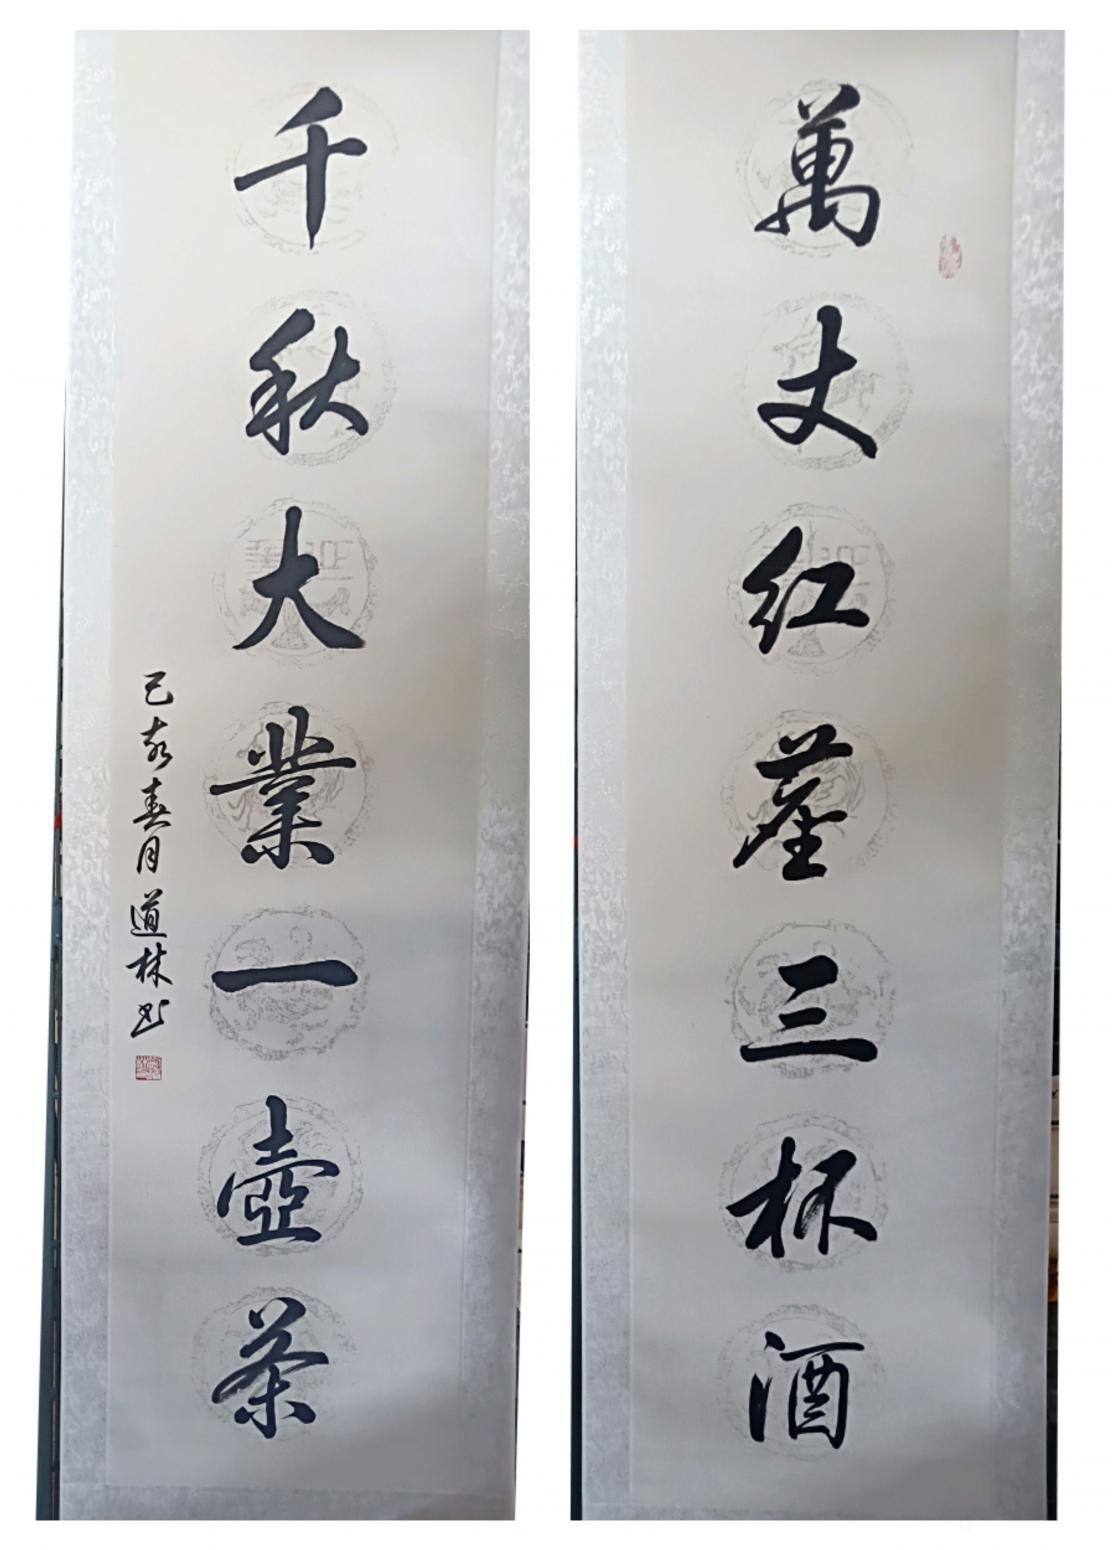 萬丈红塵三杯酒
千秋大業一壺茶
己亥春月道林书